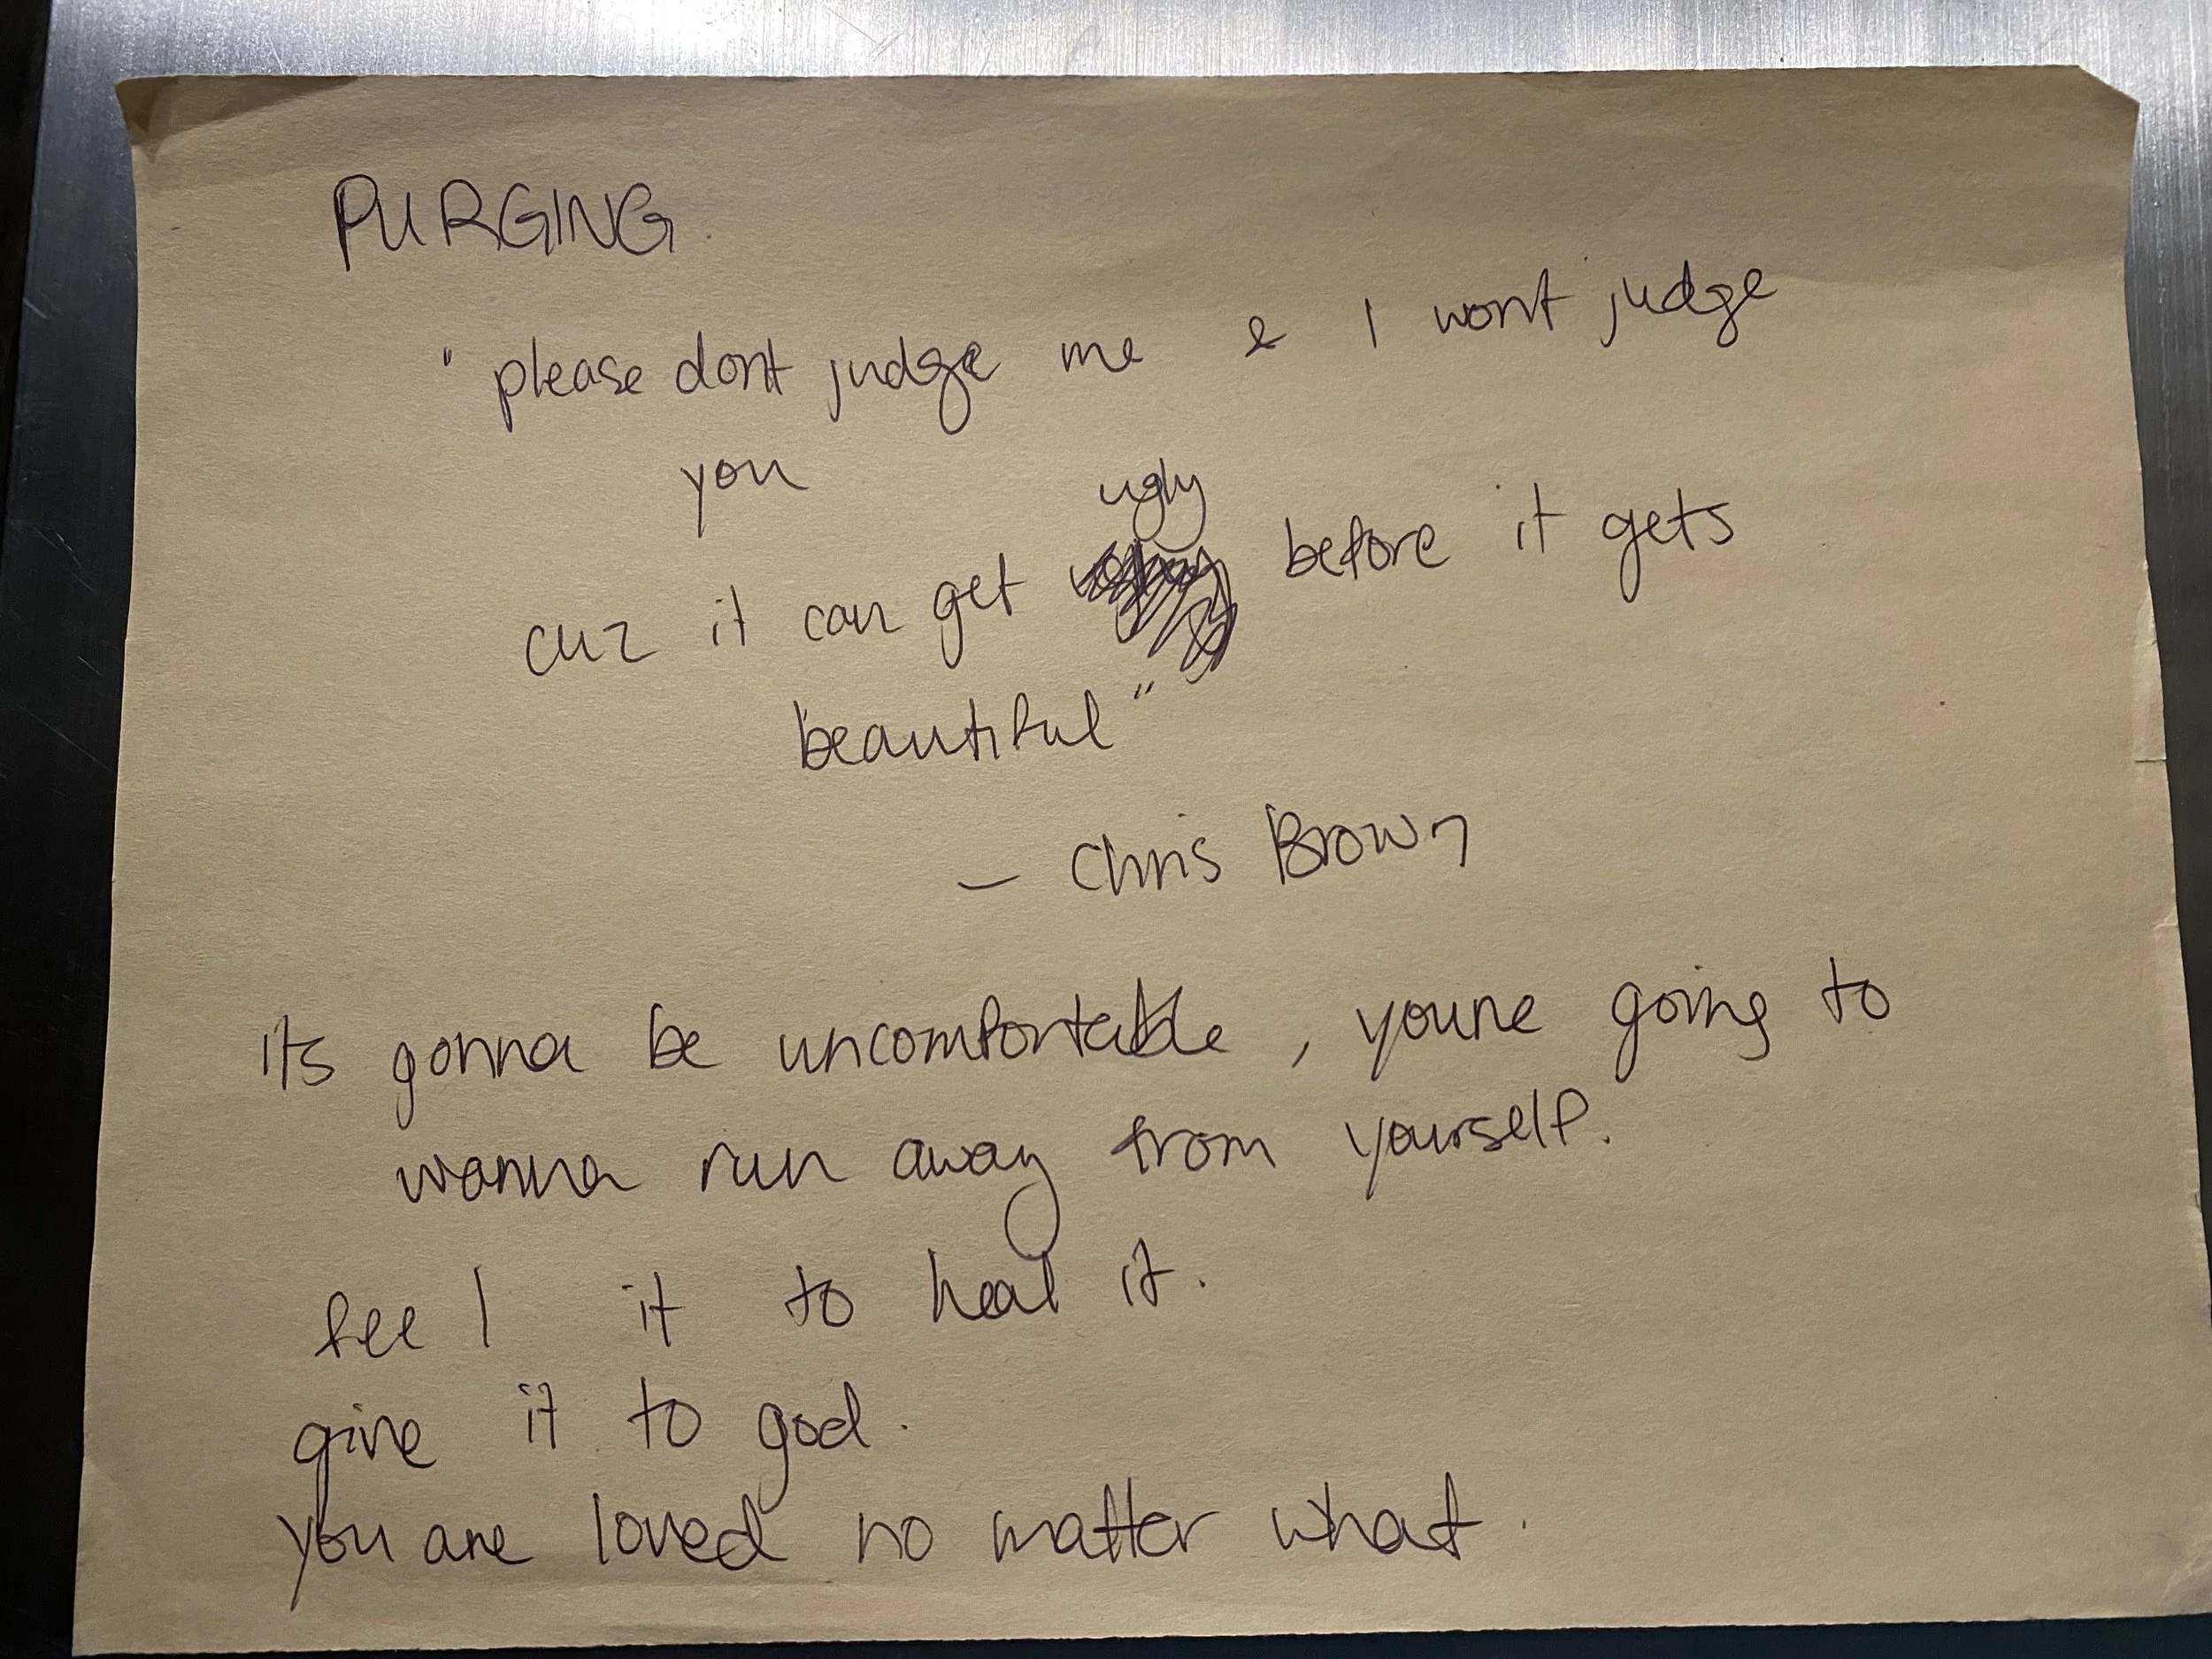 PURGING
"please dont judge me & I wont judge
you
cuz it can get ugly before it gets
beautiful"
– Chris Brown
its gonna be uncomfortable, youre going to
wanna run away from yourself.
feel it to heal it.
give it to god.
you are loved no matter what.